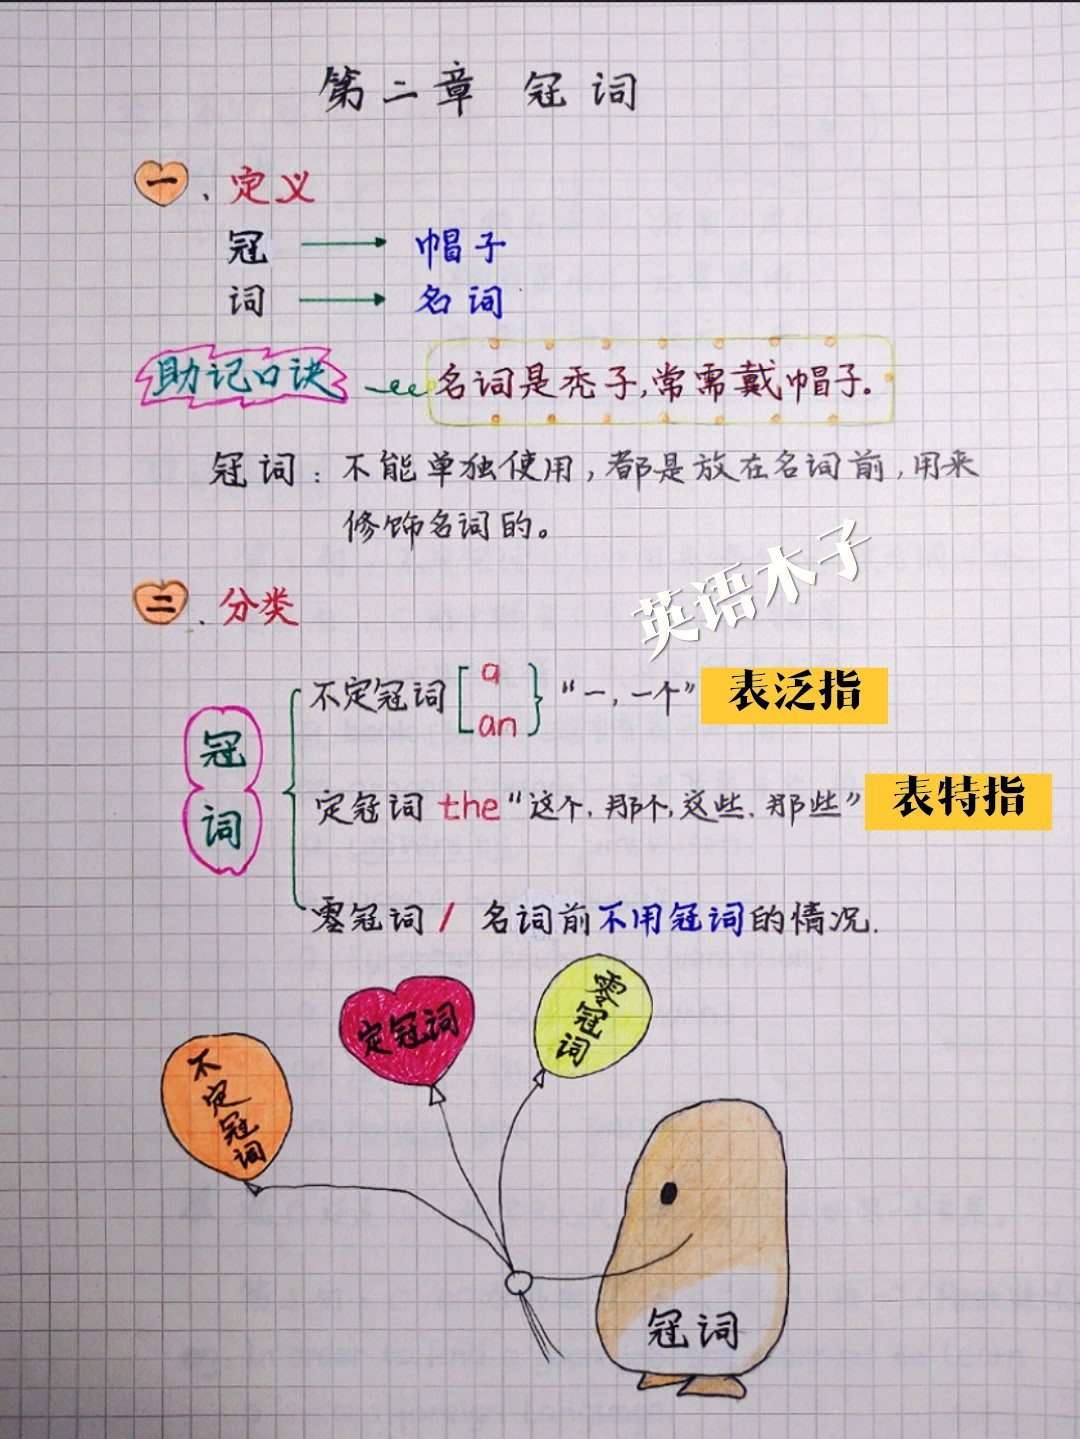 第二章 冠词
一、定义
冠 → 帽子
词 → 名词
助记口诀 名词是秃子,常需戴帽子.
冠词：不能单独使用,都是放在名词前,用来
修饰名词的。
英语木子
二、分类
冠词
不定冠词 [a an} “一,一个” 表泛指
定冠词 the “这个,那个,这些,那些” 表特指
零冠词 / 名词前不用冠词的情况.
不定冠词
定冠词
零冠词
冠词